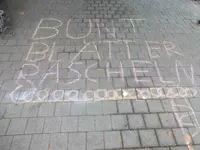 BUNT
BLÄTTER
RASCHELN